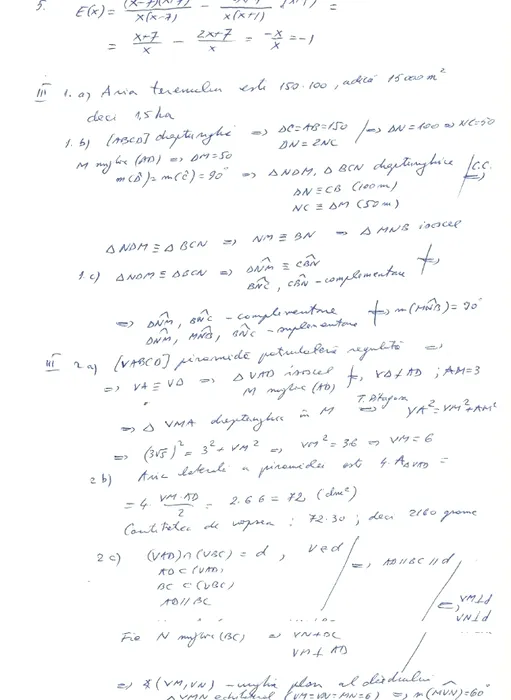 5. E(x) = (x-7)(x+7)/x(x-7) - x(x+1) =
= x+7/x - 2x+7/x = -x/x = -1
III 1. a) Aria terenului este 150·100, adică 15000 m²
deci 1,5 ha
1. b) [ABCD] dreptunghi => DC=AB=150 /=> DN=100 => NC=50
DN=2NC
M mijloc (AD) => DM=50
m(D̂)=m(Ĉ)=90° => ΔNDM, ΔBCN dreptunghice /C.C. =>
DN≡CB (100m)
NC≡DM (50m)
ΔNDM≡ΔBCN => NM≡BN => ΔMNB isoscel
1.c) ΔNDM≡ΔBCN => DNM≡CBN
BNC, CBN-complementare
=> DNM, BNC-complementare
DNM, MNB, BNC-suplementare => m(MNB)=90°
III 2 a) [VABCD] piramidă patrulateră regulată =>
=> VA≡VD => ΔVAD isoscel
M mijloc (AD) => VM⊥AD ; AM=3
=> ΔVMA dreptunghic în M T. Pitagora => VA²=VM²+AM²
=> (3√5)²=3²+VM² => VM²=36 => VM=6
2 b) Aria laterală a piramidei este 4·A_ΔVAD =
= 4 VM·AD/2 = 2·6·6=72 (dm²)
Cantitatea de vopsea : 72·30 ; deci 2160 grame
2 c) (VAD)∩(VBC)=d, V∈d
AD⊂(VAD)
BC⊂(VBC)
AD∥BC
=> AD∥BC∥d
=> VM⊥d
VN⊥d
Fie N mijloc (BC) => VN⊥BC
VM⊥AD
=> ∢(VM,VN) -unghi plan al diedrului
ΔVMN echilateral (VM=VN=MN=6) => m(MVN)=60°